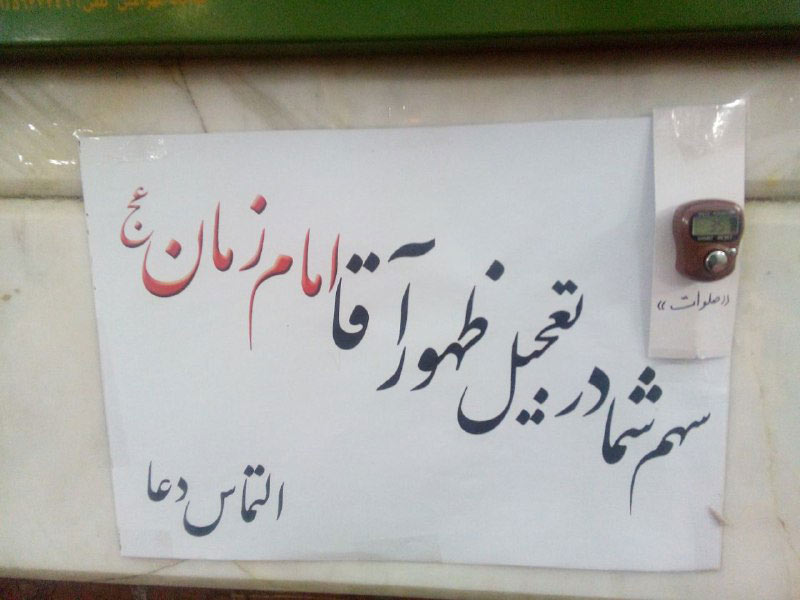 «صلوات»
سهم شما در تعجیل ظهور آقا امام زمان عج
التماس دعا